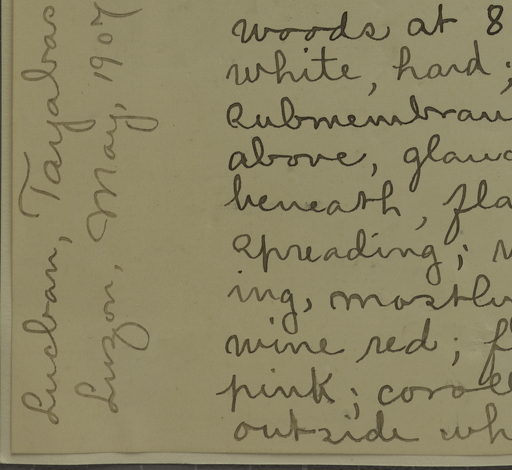 Lucban, Tayabas
Luzon, May, 1907
woods at 8
white, hard;
submembran
above, glauc
beneath, fla
spreading;
ing, mostly
wine red; f
pink; coroll
outside wh